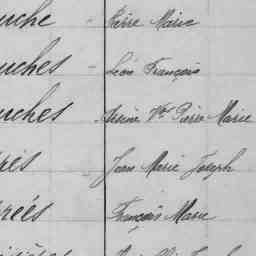 uche " Pierre Marie
uches " Léon François
uches Vve Pierre Marie
Jean Marie Joseph
rées François Marie